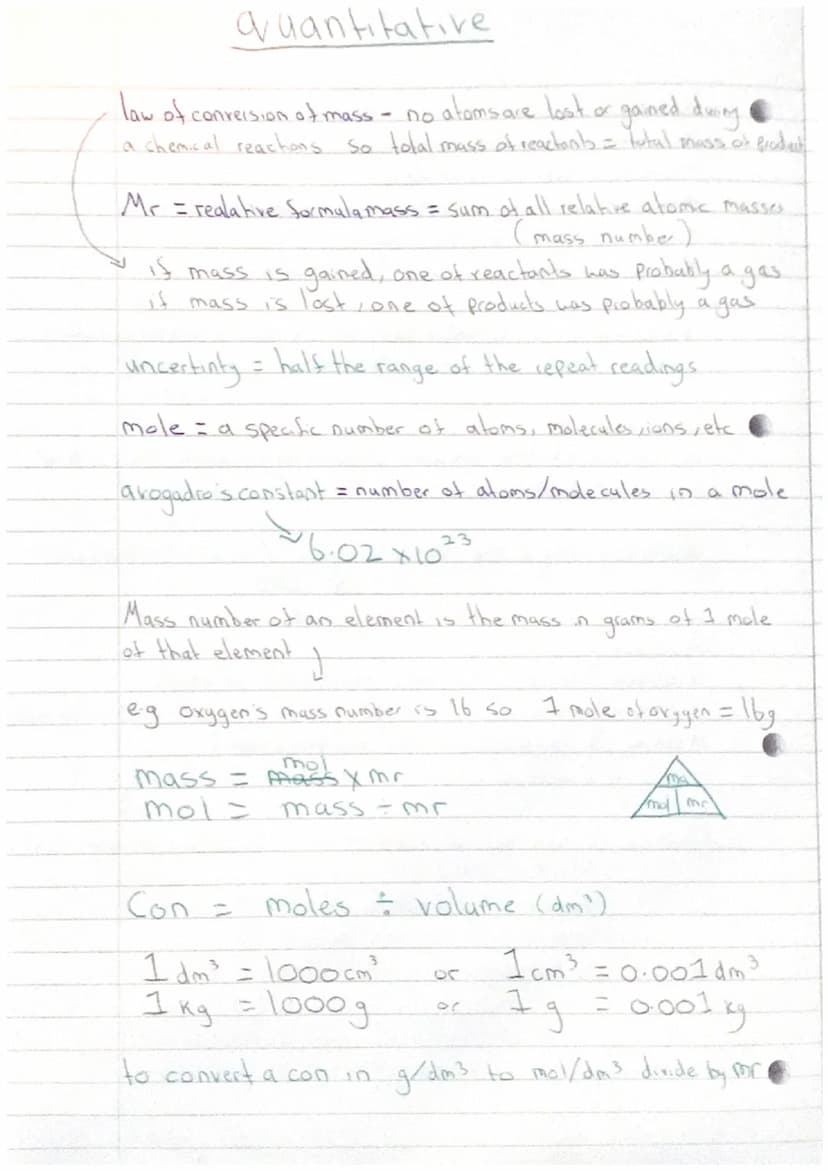 Quantitative
law of conversion of mass - no atoms are lost or gained during
a chemical reactions so total mass of reactants = total mass of product
Mr = realative formula mass = sum of all relative atomic masses
(mass number)
if mass is gained, one of reactants was probably a gas
if mass is lost, one of products was probably a gas
uncertinty = half the range of the repeat readings
mole = a specific number of atoms, molecules, ions, etc
avogadro's constant = number of atoms/molecules in a mole
≈ 6.02 x10²³
Mass number of an element is the mass in grams of 1 mole
of that element
e.g oxygen's mass number is 16 so 1 mole of oxygen = 16g
mass = mass mol x mr
mol = mass ÷ mr
ma
mol mr
Con = moles ÷ volume (dm³)
1 dm³ = 1000cm³ or 1cm³ = 0.001dm³
1 kg = 1000g or 1g = 0.001 kg
to convert a con in g/dm³ to mol/dm³ divide by mr